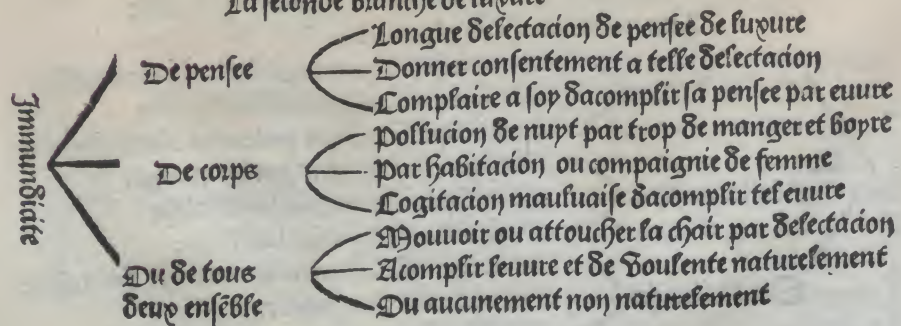 La seconde branche de luxure
Immundicite
De pensee
Longue delectacion de pensee de luxure
Donner consentement a telle delectacion
Complaire a soy dacomplir sa pensee par euure
De corps
Pollucion de nuyt par trop de manger et boyre
Par habitacion ou compaignie de femme
Cogitacion mauluaise dacomplir tel euure
Ou de tous
deux ensẽble
Mouuoir ou attoucher la chair par delectacion
Acomplir leuure et de voulente naturelement
Ou aucunement non naturelement